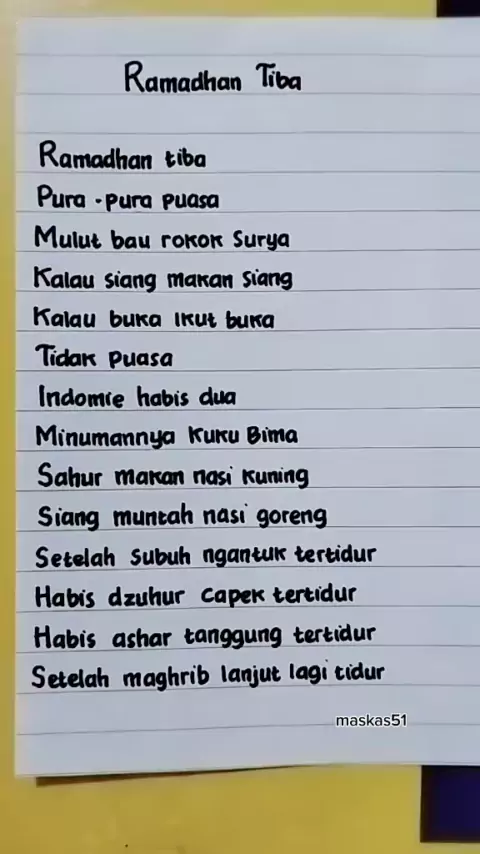 Ramadhan Tiba
Ramadhan tiba
Pura-pura puasa
Mulut bau rokok Surya
Kalau siang makan siang
Kalau buka ikut buka
Tidak puasa
Indomie habis dua
Minumannya Kuku Bima
Sahur makan nasi kuning
Siang muntah nasi goreng
Setelah subuh ngantuk tertidur
Habis dzuhur capek tertidur
Habis ashar tanggung tertidur
Setelah maghrib lanjut lagi tidur
maskas51